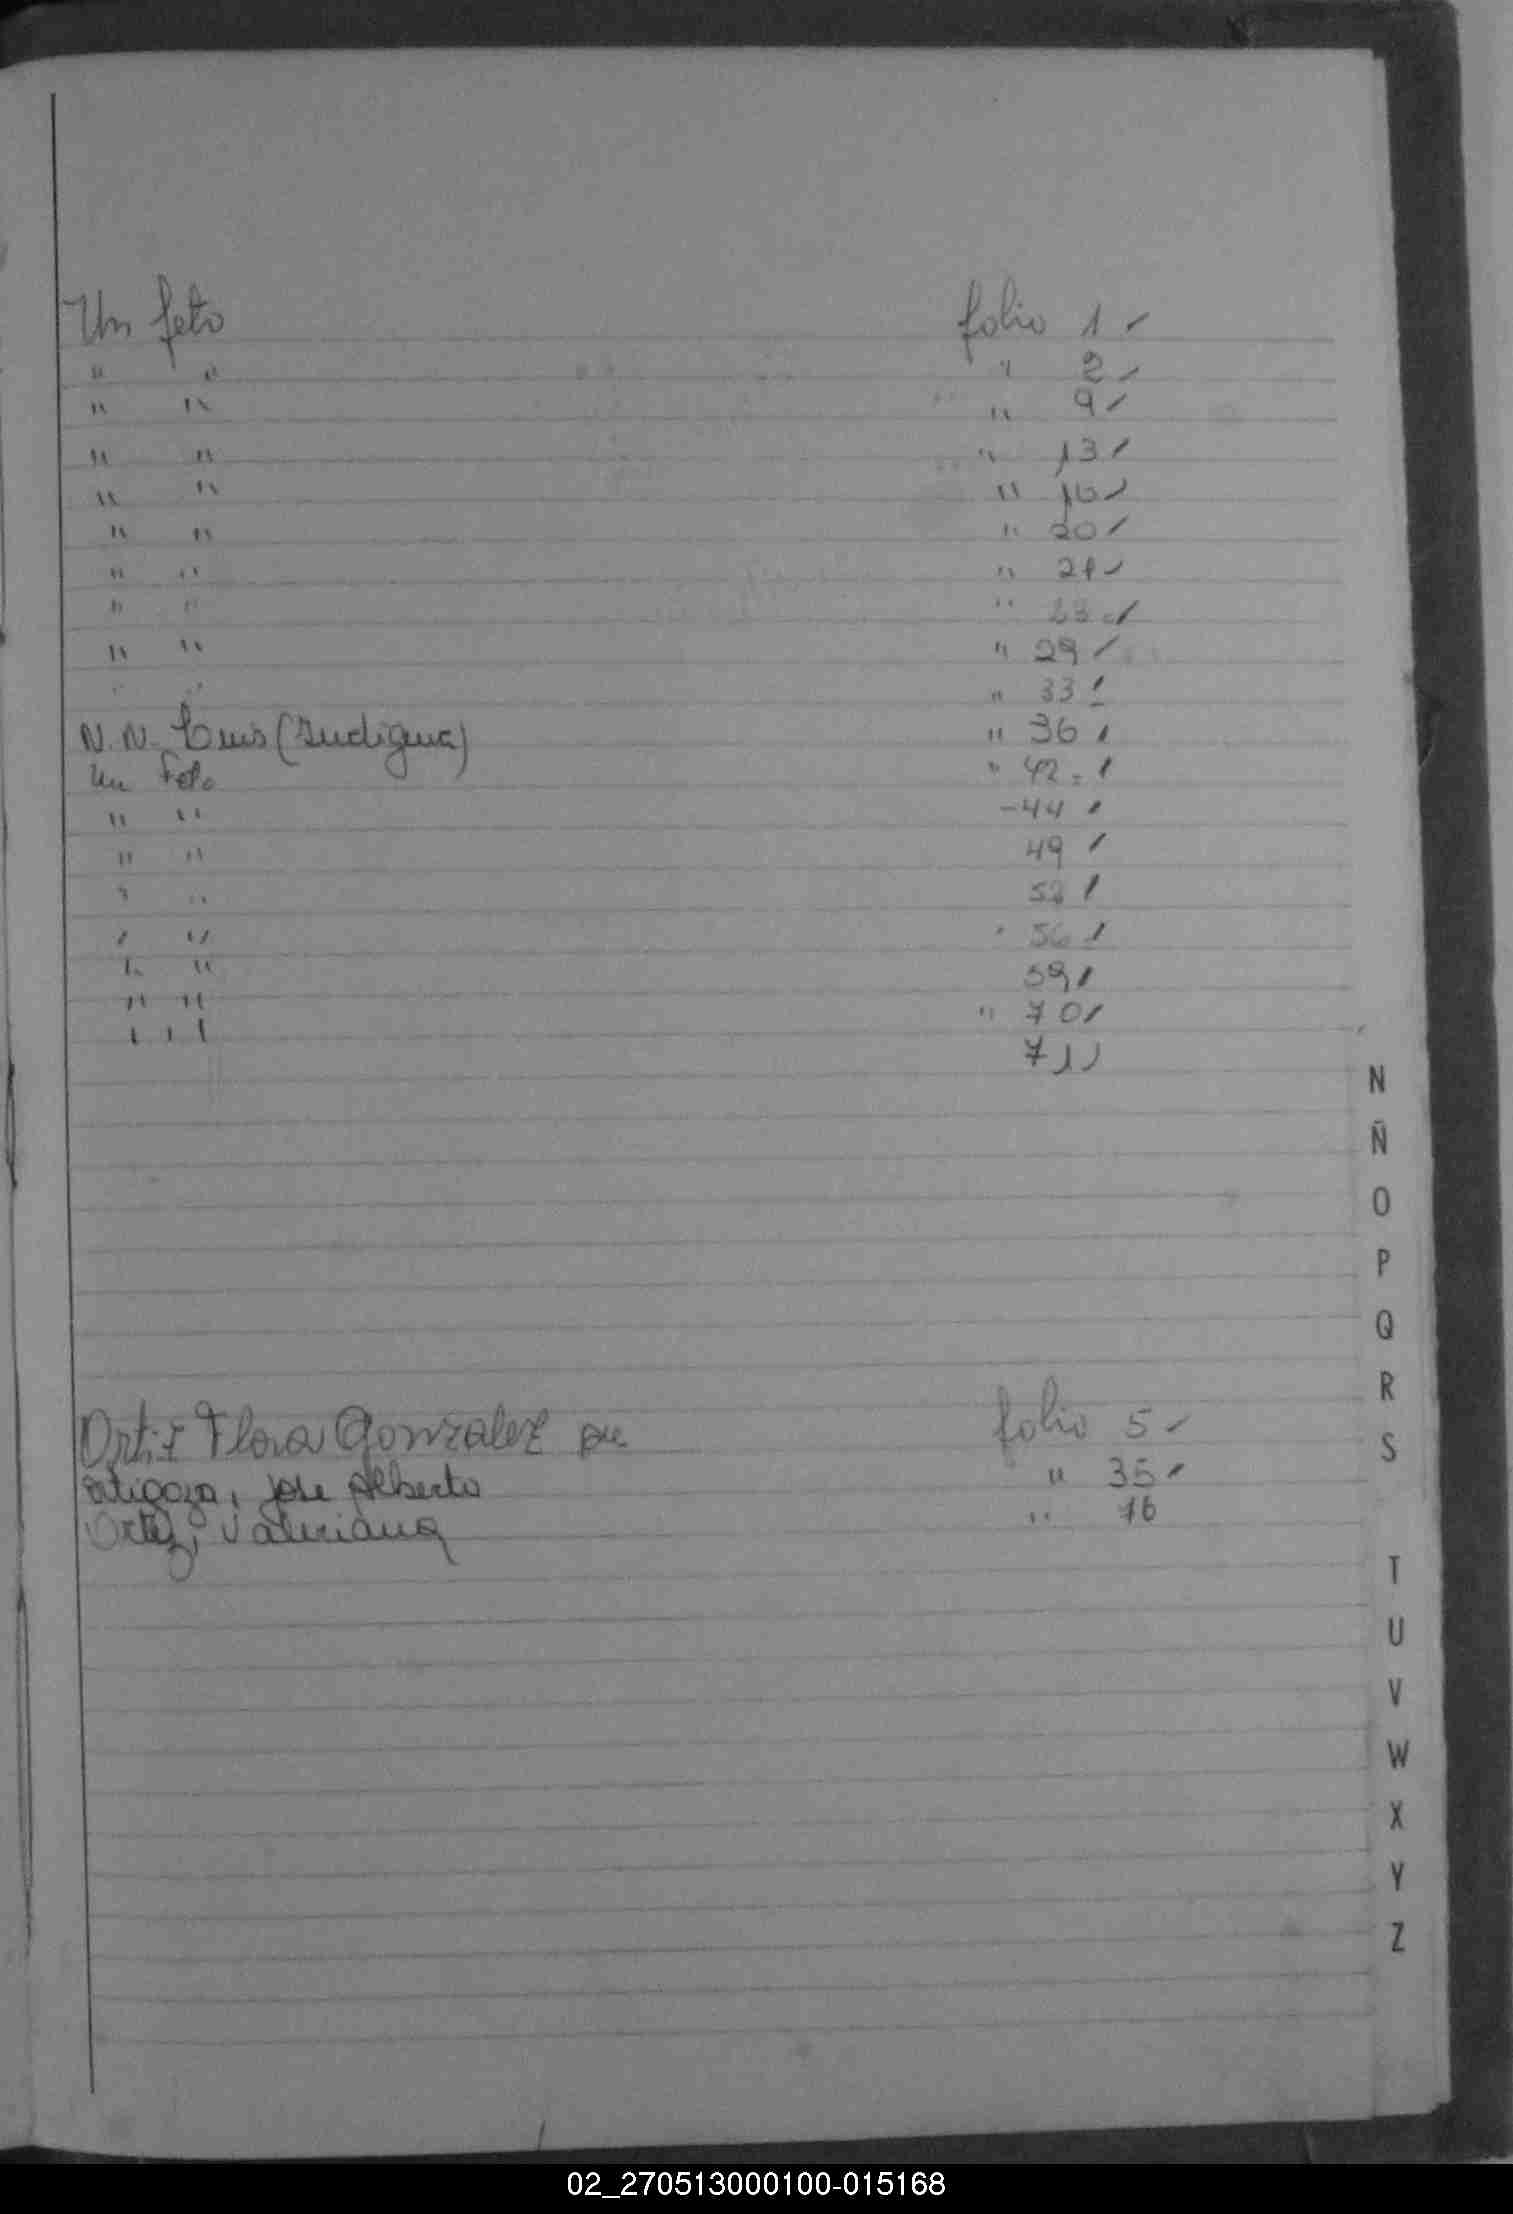 Un feto folio 1 ✓
" " " 2 ✓
" " " 9 ✓
" " " 13 ✓
" " " 16 ✓
" " " 20 ✓
" " " 21 ✓
" " " 23 ✓
" " " 29 ✓
" " " 33 ✓
N.N. Luis (Indigena) " 36 ✓
Un Feto " 42 ✓
" " - 44 ✓
" " 49 ✓
" " 52 ✓
" " " 56 ✓
" " 59 ✓
" " " 70 ✓
" " 71 ✓
Ortiz Flora Gonzalez de folio 5 ✓
Ortigoza, Jose Alberto " 35 ✓
Ortiz, Valeriana " 76
N
Ñ
O
P
Q
R
S
T
U
V
W
X
Y
Z
02_270513000100-015168